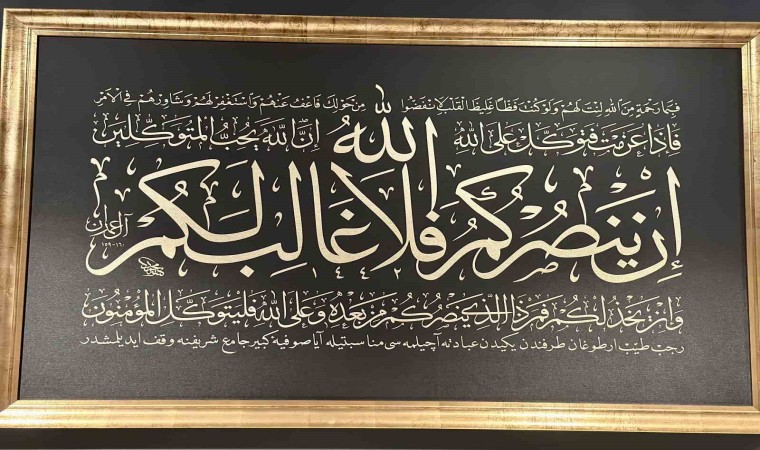 فَبِمَا رَحْمَةٍ مِنَ اللهِ لِنْتَ لَهُمْ وَلَوْ كُنْتَ فَظًّا غَلِيظَ الْقَلْبِ لَانْفَضُّوا مِنْ حَوْلِكَ فَاعْفُ عَنْهُمْ وَاسْتَغْفِرْ لَهُمْ وَشَاوِرْهُمْ فِي الْاَمْرِ
فَإِذَا عَزَمْتَ فَتَوَكَّلْ عَلَى اللهِ إِنَّ اللهَ يُحِبُّ الْمُتَوَكِّلِينَ
إِنْ يَنْصُرْكُمُ اللهُ فَلَا غَالِبَ لَكُمْ
آل عمران
١٥٩-١٦٠
١٤٤٢
وَإِنْ يَخْذُلْكُمْ فَمَنْ ذَا الَّذِي يَنْصُرُكُمْ مِنْ بَعْدِهِ وَعَلَى اللهِ فَلْيَتَوَكَّلِ الْمُؤْمِنُونَ
رجب طيب اردوغان طرفندن يكيدن عبادته آچيلمه سى مناسبتيله آياصوفيۀ كبير جامع شريفنه وقف ايديلمشدر